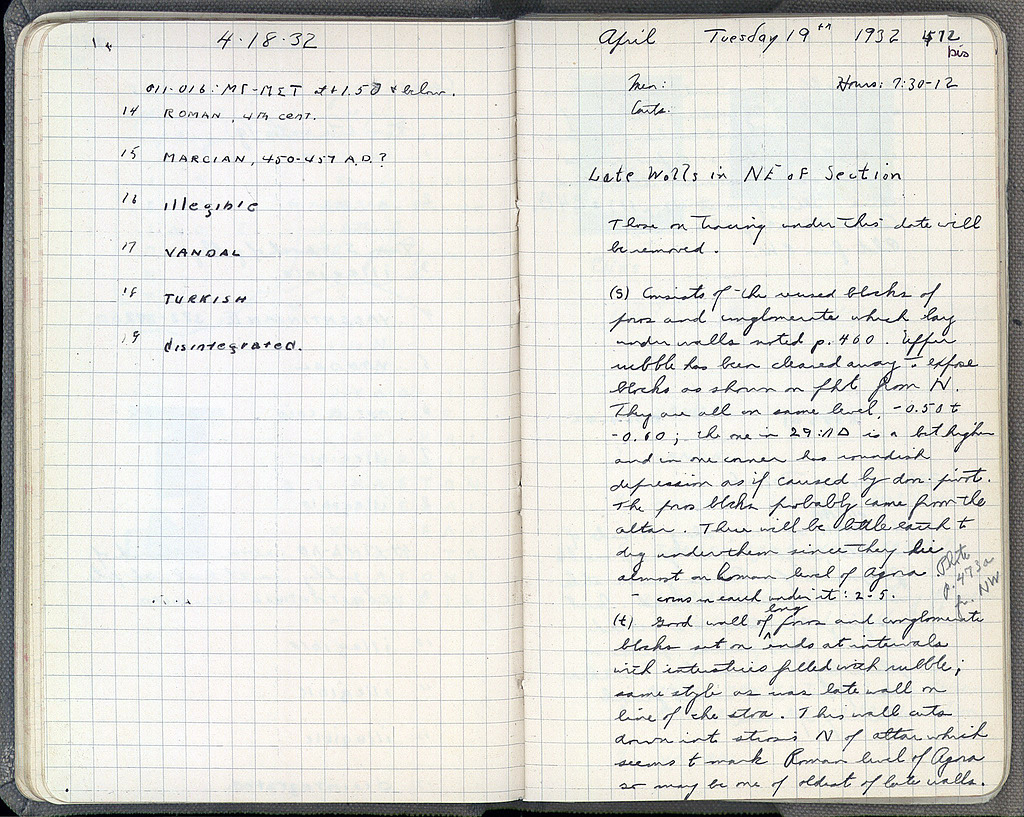 4·18·32
14 ROMAN, 4th cent.
15 MARCIAN, 450-457 A.D.?
16 illegible
17 VANDAL
18 TURKISH
19 disintegrated.
April Tuesday 19th 1932 472
bis
Men: Hours: 7:30-12
Carts.
Late Walls in NE of Section
Those on tracing under this date will
be removed.
(s) Consists of the reused blocks of
poros and conglomerate which lay
under walls noted p. 460. Upper
rubble has been cleared away to expose
blocks as shown on pht from N.
They are all on same level, -0.50 to
-0.60; the one in 29:ΛΔ is a bit higher
and in one corner has roundish
depression as if caused by door pivot.
The poros blcks probably came from the
altar. There will be little earth to
dig under them since they lie
almost on Roman level of Agora.
- coins in earth under it: 2-5.
Photo
p. 473a
fr. NW
(t) Good wall of long poros and conglomerate
blocks set on ends at intervals
with interstices filled with rubble;
same style as was late wall on
line of the stoa. This wall cuts
down into stroses N of altar which
seems to mark Roman level of Agora
so may be one of oldest of late walls.